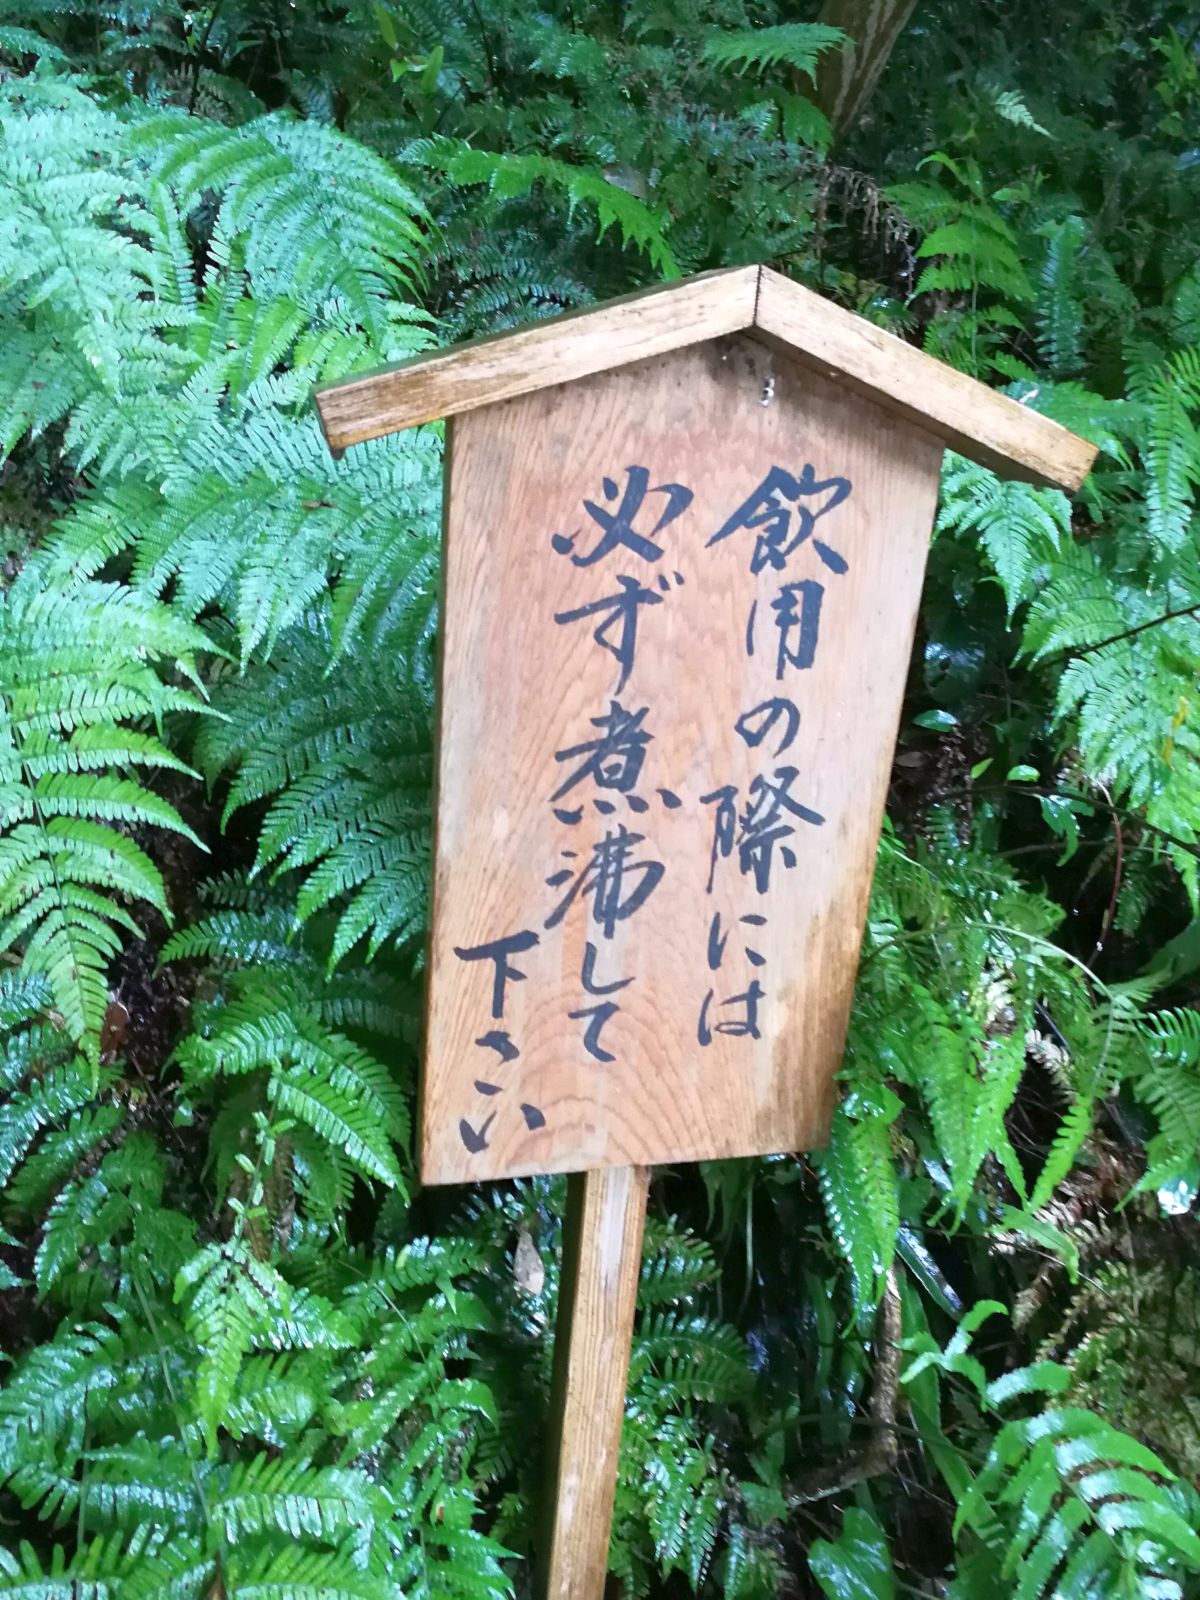 飲用の際には
必ず煮沸して
下さい